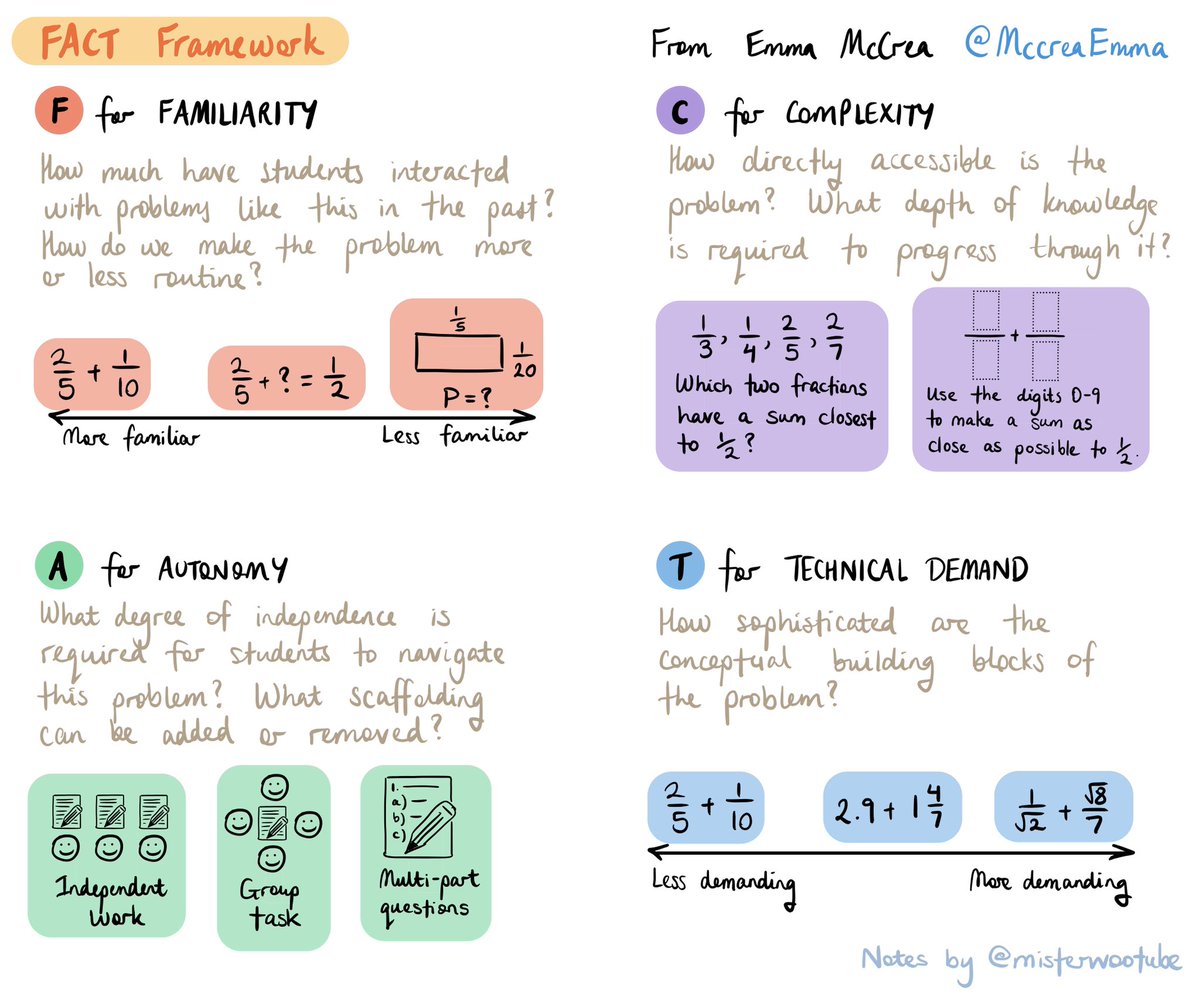 FACT Framework
From Emma McCrea @MccreaEmma
F for FAMILIARITY
How much have students interacted
with problems like this in the past?
How do we make the problem more
or less routine?
2/5 + 1/10
2/5 + ? = 1/2
1/5
1/20
P = ?
More familiar
Less familiar
C for COMPLEXITY
How directly accessible is the
problem? What depth of knowledge
is required to progress through it?
1/3, 1/4, 2/5, 2/7
Which two fractions
have a sum closest
to 1/2?
+
Use the digits 0-9
to make a sum as
close as possible to 1/2.
A for AUTONOMY
What degree of independence is
required for students to navigate
this problem? What scaffolding
can be added or removed?
Independent
work
Group
task
1.
a)
b)
c)
Multi-part
questions
T for TECHNICAL DEMAND
How sophisticated are the
conceptual building blocks of
the problem?
2/5 + 1/10
2.9 + 1 4/7
1/√2 + √8/7
Less demanding
More demanding
Notes by @misterwootube